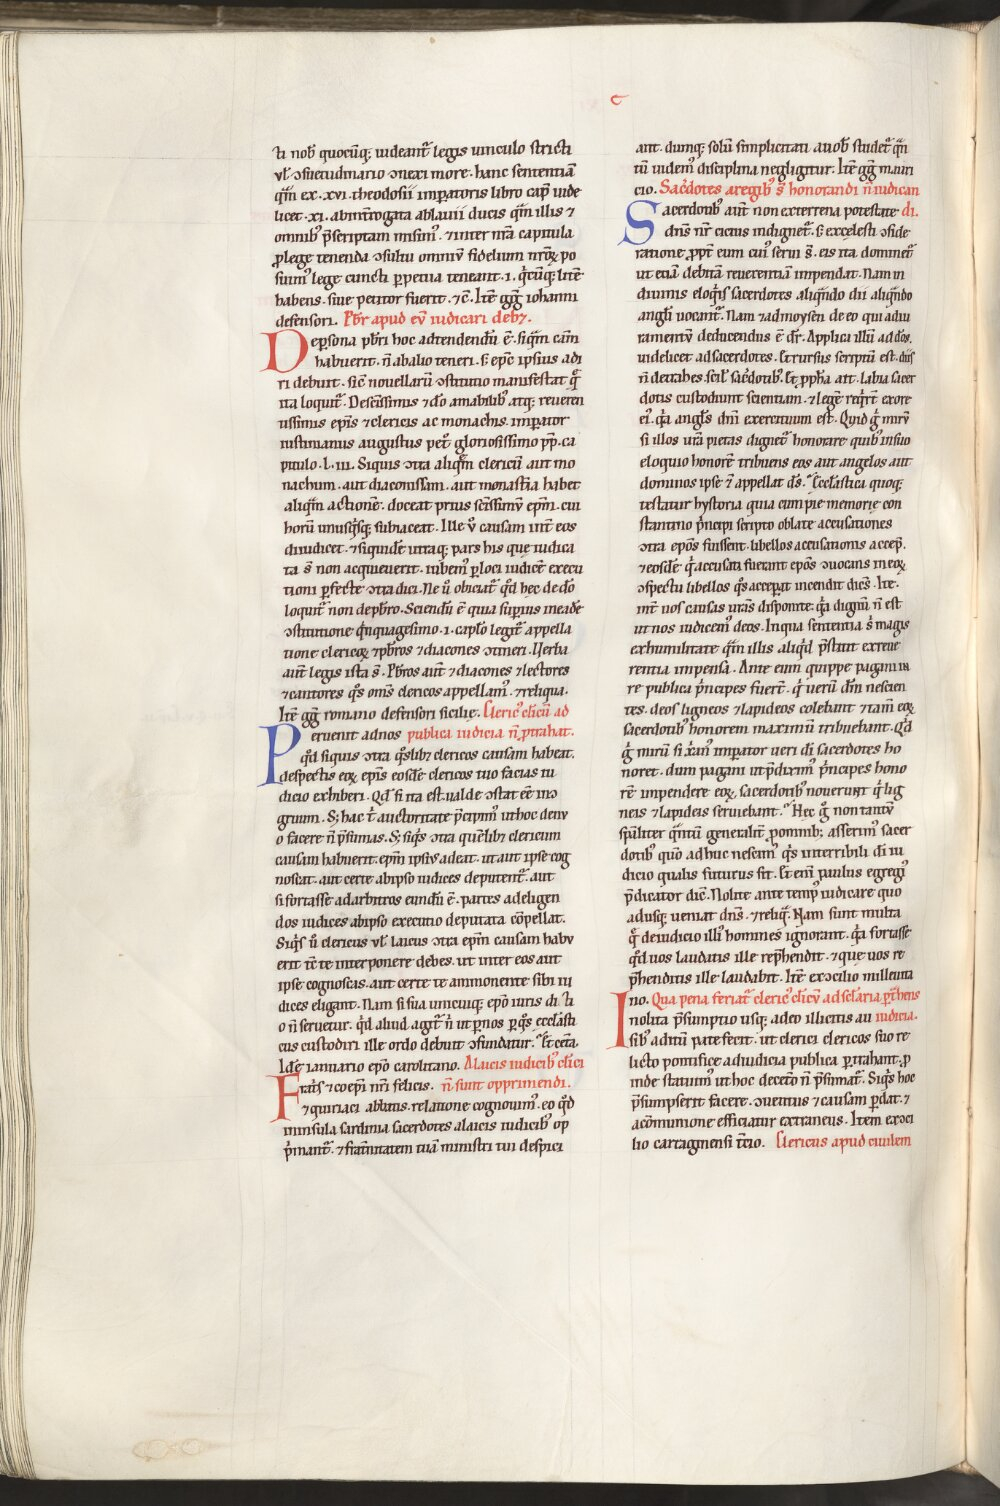 c
ti nob̄ quocūq; uideant᷑ legis uinculo stricti
ul̄ ↄsuetudinario ↄnexi more. hanc sententiā
qm̄ ex .xvi. theodosii impatoris libro cap̄ uide
licet .xi. abint᷑rogata ablauii ducis qm̄ illis ⁊
omnib᷒ p̄scriptam misim᷒. ⁊ inter nr̄a capitula
ꝓlege tenenda ↄsultu omniū fidelium nr̄oꝝ po
suim᷒ lege cuncti ꝑpetua teneant .i. q̇cūq; litē
habens. siue petitor fuerit. ⁊ c̄. Itē gḡ iohanni
defensori. Pb̄r apud ep̄m iudicari deb&.
Depsona pb̄ri hoc adtendendū ē. siqm̄ cām
habuerit. n̄ abalio teneri. s; ep̄c ipsius adi
ri debuit. sic̄ nouellarū ↄstitutio manifestat q̄
ita loquit᷑. Descissimis ⁊ dō amabilib᷒ atq; reueren
tissimis ep̄is ⁊ clericis ac monachis. impator
iustinianus augustus pet᷑ gloriosissimo pp̄. ca
pitulo .l.iii. Siquis ↄtra aliqm̄ clericū aut mo
nachum. aut diaconissam. aut monast᷑ia habet
aliqm̄ actionē. doceat prius sc̄issimū ep̄m. cui
horū unusq̇sq; subiaceat. Ille ū causam int᷑ eos
diiudicet. ⁊ siquidē utraq; pars his que iudica
ta s̄ non acquieuerit. iubem᷒ ꝑ loci iudicē execu
tioni ꝑfecte ↄtradici. Ne ū obiciat᷑ qd̄ hec dedō
loquit᷑ non depb̄ro. Sciendū ē quia superius ineadē
ↄstitutione q̇nquagesimo .i. caplo legit᷑ appella
tione clericoꝝ ⁊ pb̄ros ⁊ diacones ↄtineri. Uerba
aut̄ legis ista s̄. Pb̄ros aut̄ ⁊ diacones ⁊ lectores
⁊ cantores q̇s om̄s clericos appellam᷒. ⁊ reliqua.
Itē gḡ romano defensori sicilie. Cleric᷒ clicū ad
Peruenit adnos publica iudicia n̄ ptrahat.
qd̄ siquis ↄtra q̇slib& clericos causam habeat.
despectis eoꝝ ep̄is eosdē clericos tuo facias iu
dicio exhiberi. Qd̄ si ita est. ualde ↄstat ēē in
gruum. S; hac t᷑ auctoritate p̄cipim᷒ ut hoc denu
o facere n̄ p̄sumas. S; siq̇s ↄtra quēlib& clericum
causam habuerit. ep̄m ipsiū adeat. ut aut ipse cog
noscat. aut certe abipso iudices deputent᷑. aut
si fortasse adarbitros eundū ē. partes adeligen
dos iudices abipso executio deputata cōpellat.
Siq̇s ū clericus ul̄ laicus ↄtra ep̄m causam habu
erit tē te interponere debes. ut inter eos aut
ipse cognoscas. aut certe te ammonente sibi iu
dices eligant. Nam si sua unicuiq; ep̄o iuris dicti
o n̄ seruetur. qd̄ aliud agit᷑ n̄ ut ꝑnos ꝑ q̇s ecclāsti
cus custodiri ille ordo debuit ↄfundatur. Et cet̄a.
Idē ianuario ep̄o caralitano. Alaicis iudicib᷒ clīci
Fratris ⁊ coep̄i nr̄i felicis. n̄ sunt opprimendi.
⁊ quiriaci abbatis. relatione cognouim᷒. eo qd̄
ininsula sardinia sacerdotes alaicis iudicib᷒ op
p̄mant᷑. ⁊ frat᷑nitatem tuā ministri tui despici
ant. dumq; solū simplicitati auob̄ studet᷑ qn̄
tū uidem᷒ disciplina negligitur. Itē gḡ mauri
cio. Sac̄dotes aregib᷒ s̄ honorandi n̄ iudican
Sacerdotib᷒ aut̄ non exterrena potestate di.
dn̄s nr̄ citius indignet᷑. s; excelesti ↄside
ratione ꝓpt᷑ eum cui᷒ serui s̄. eis ita dominet᷑
ut etiā debitā reuerentiā impendat. Nam in
diuinis eloq̇is sacerdotes aliq̇ndo dii aliq̇ndo
angl̄i uocant᷑. Nam ⁊ admoysen de eo qui adiu
ramentū deducendus ē dr̄. Applica illū ad dos.
uidelicet ad sacerdotes. Et rursus scriptū est. diis
n̄ detrahes. scil̄ sac̄dotib᷒. Et pph̄a ait. Labia sacer
dotis custodiunt scientiam. ⁊ legē req̇rt̄ exore
ei᷒. q̇a angls̄ dn̄i exercituum est. Quid g̊ mirū
si illos ur̄a pietas dignet᷑ honorare quib᷒ insuo
eloquio honorē tribuens eos aut angelos aut
dominos ipse ⁊ appellat ds̄. Eccl̄astica quoq;
testatur hystoria quia cum pie memorie con
stantino p̄ncipi scripto oblate accusationes
ↄtra ep̄os fuissent. libellos accusationis accep̄.
⁊ eosdē q̇ accusati fuerant ep̄os ↄuocans in eoꝝ
ↄspectu libellos q̇s acceperat incendit dicēs. Ite.
int᷑ uos causas uras̄ disponite. q̇a dignū n̄ est
ut nos iudicem᷒ deos. In qua sententia s; magis
exhumilitate qm̄ illis aliq̇d p̄stitit exreue
rentia impensa. Ante eum quippe pagani in
re publica p̄ncipes fuert̄. q̇ uerū dm̄ nescien
tes. deos ligneos ⁊ lapideos colebant ⁊ tam̄ eoꝝ
sacerdotib᷒ honorem maximū tribuebant. Qd̄
g̊ mirū si xp̄ian᷒ impator ueri di sacerdotes ho
noret. dum pagani ut p̄dixim᷒ p̄ncipes hono
rē impendere eoꝝ sacerdotib᷒ nouerunt q̇ lig
neis ⁊ lapideis seruiebant. Hec g̊ non tantū
spāliter q̇ntū generalit᷑ ꝓ omnib; asserim᷒ sacer
dotib᷒ quo adhuc nescim᷒ q̇s interribili di iu
dicio qualis futurus sit. Et eni᷒ paulus egregi᷒
p̄dicator dic̄. Nolite ante temp᷒ iudicare quo
adusq; ueniat dn̄s. ⁊ reliq̄. Nam sunt multa
q̄ deiudicio illi᷒ homines ignorant. q̇a fortasse
qd̄ uos laudatis ille rep̄hendit. ⁊ que uos re
p̄henditis ille laudabit. Itē excↄcilio milleuita
no. Qua pena feriat᷑ cleric᷒ clīcū adsec̄laria pt᷑hens
Inolita p̄sumptio usq; adeo illicitis au iudicia.
sib᷒ aditū patefecit. ut clerici clericos suo re
licto pontifice adiudicia publica ptrahant. ꝓ
inde statuim᷒ ut hoc decet᷑o n̄ p̄sumat᷑. Siq̇s hoc
p̄sumpserit facere. ↄuentus ⁊ causam ꝑdat. ⁊
acōmunione efficiatur extraneus. Item exↄci
lio cartaginensi t̄cio. Clericus apud ciuilem